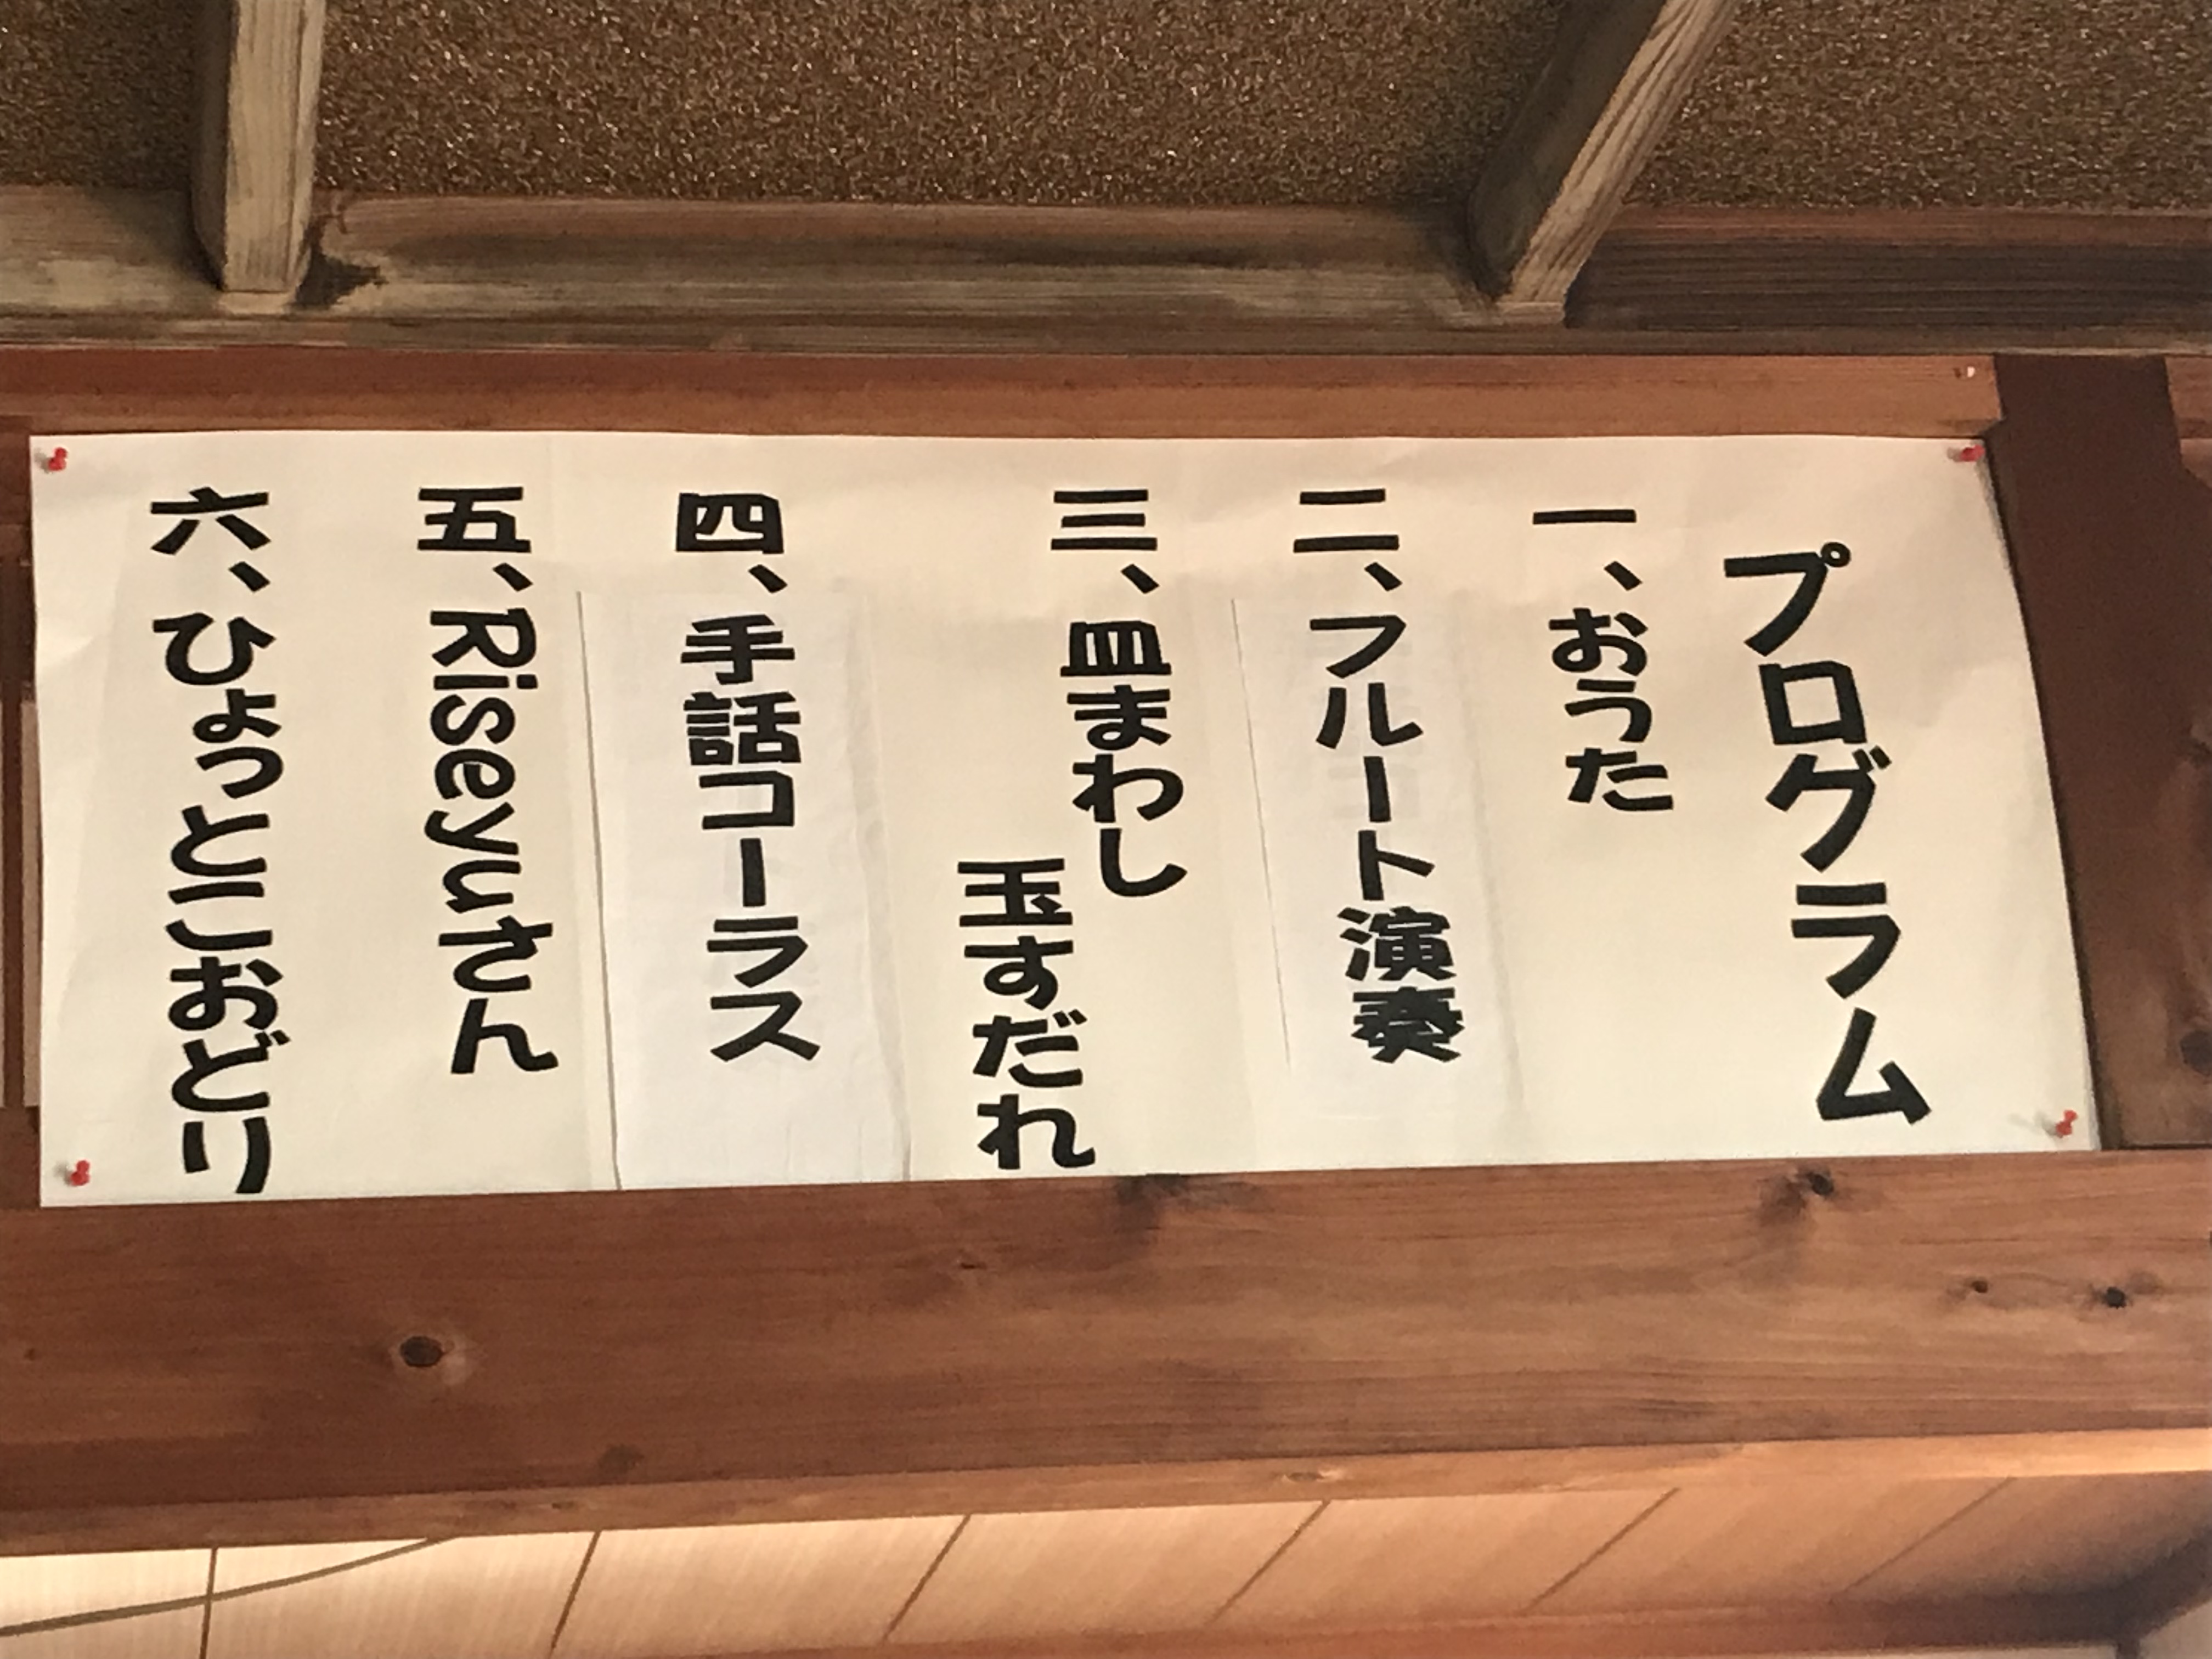 プログラム
一、おうた
二、フルート演奏
三、皿まわし
玉すだれ
四、手話コーラス
五、Riseyuさん
六、ひょっとこおどり